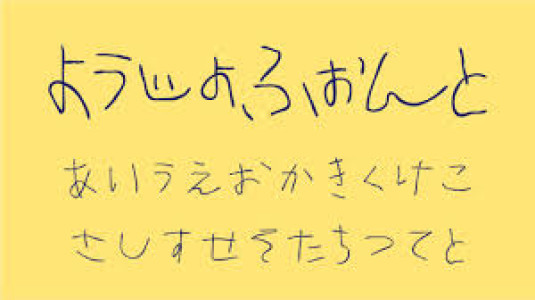 ようじょふぉんと
あいうえおかきくけこ
さしすせそたちつてと